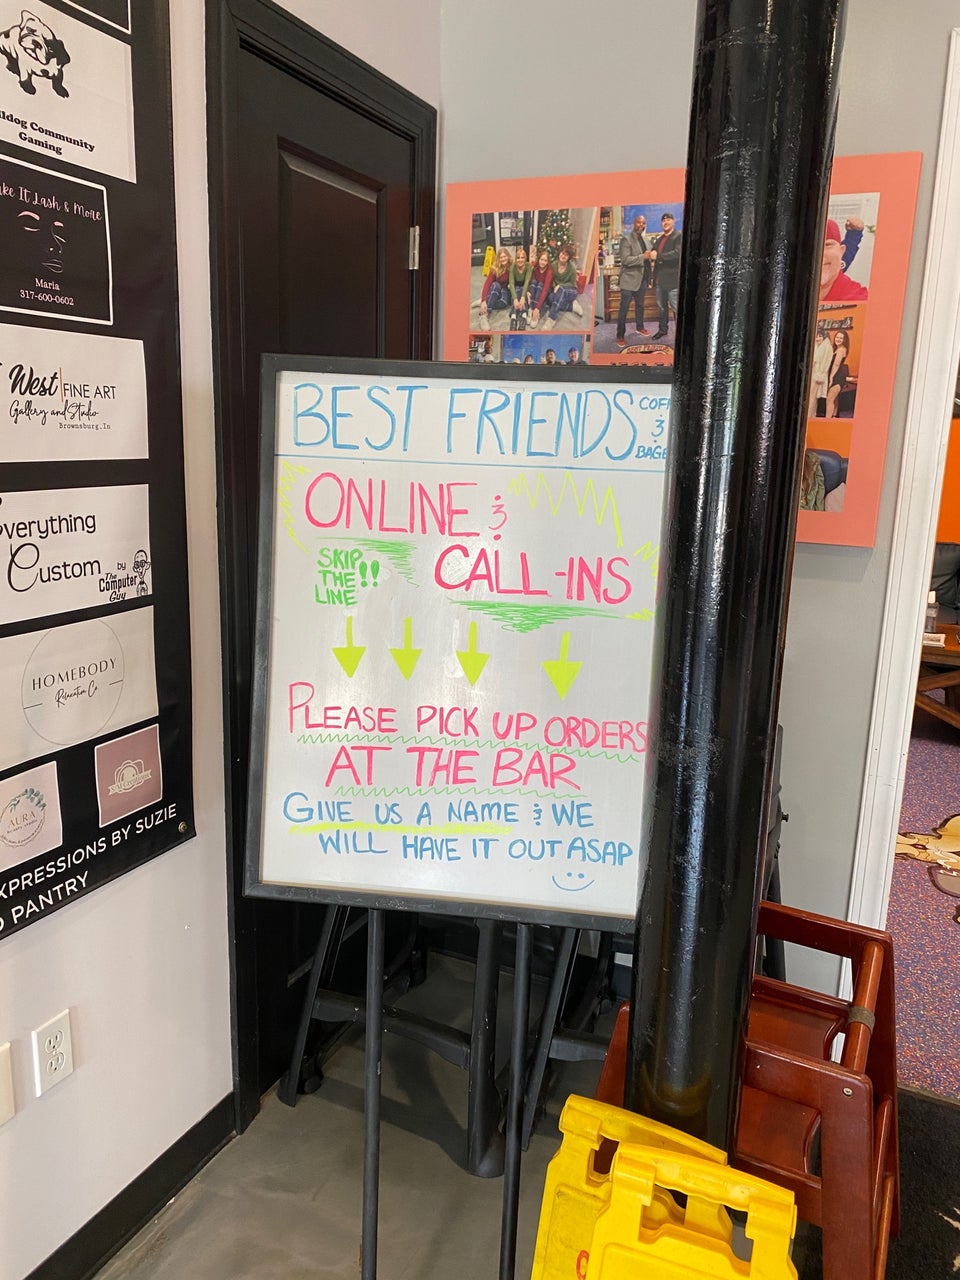 Community
Gaming
It Lash & More
Maria
317-600-0602
West FINE ART
Gallery and Studio
Brownsburg, In
Everything
Custom by
The
Computer
Guy
HOMEBODY
Relaxation Co
AURA
BY SUZIE
PANTRY
BEST FRIENDS
&
ONLINE &
SKIP
THE
LINE!!
CALL-INS
PLEASE PICK UP ORDERS
AT THE BAR
GIVE US A NAME & WE
WILL HAVE IT OUT ASAP